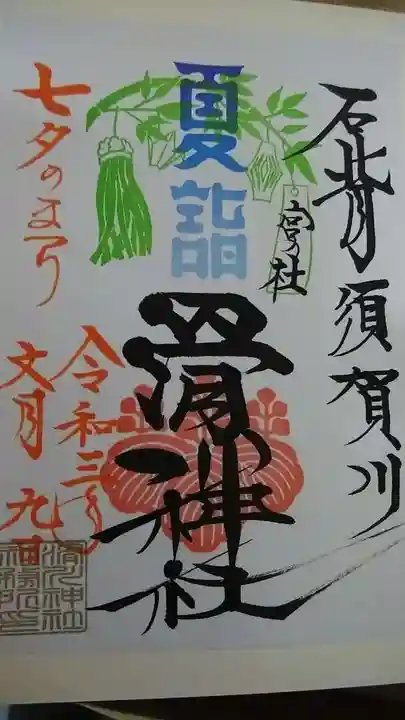 石背須賀川
夏詣
滑川神社
七夕のまつり
令和三年
文月九日